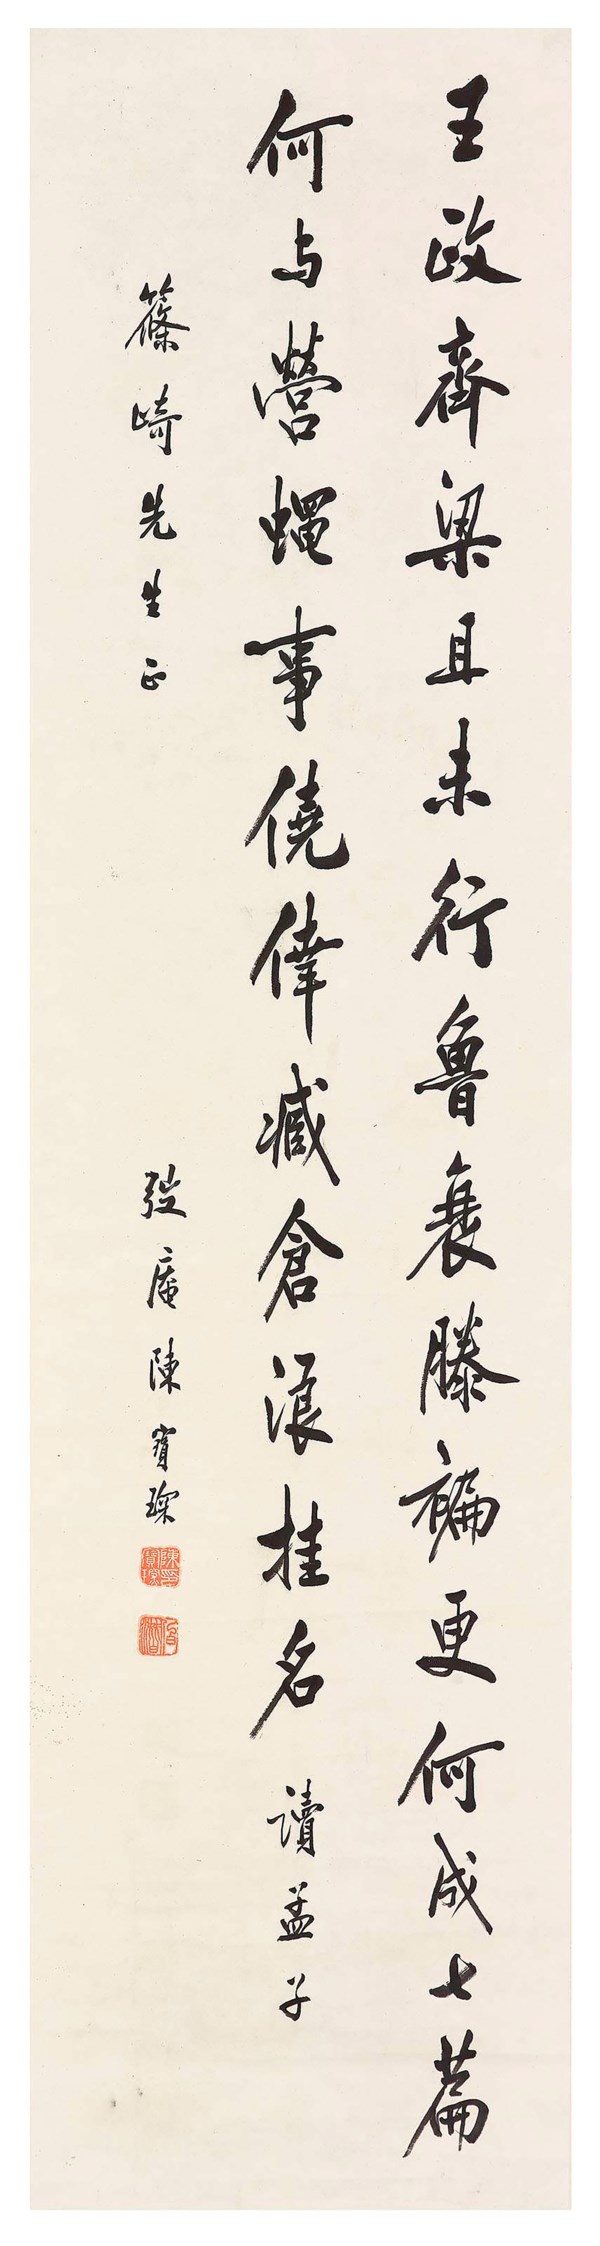 王政齊梁且未行魯衰滕褊更何成七篇
何与營蝿事僥倖臧倉浪挂名 讀孟子
篠崎先生正
弢庵陳寶琛
陳寶琛印